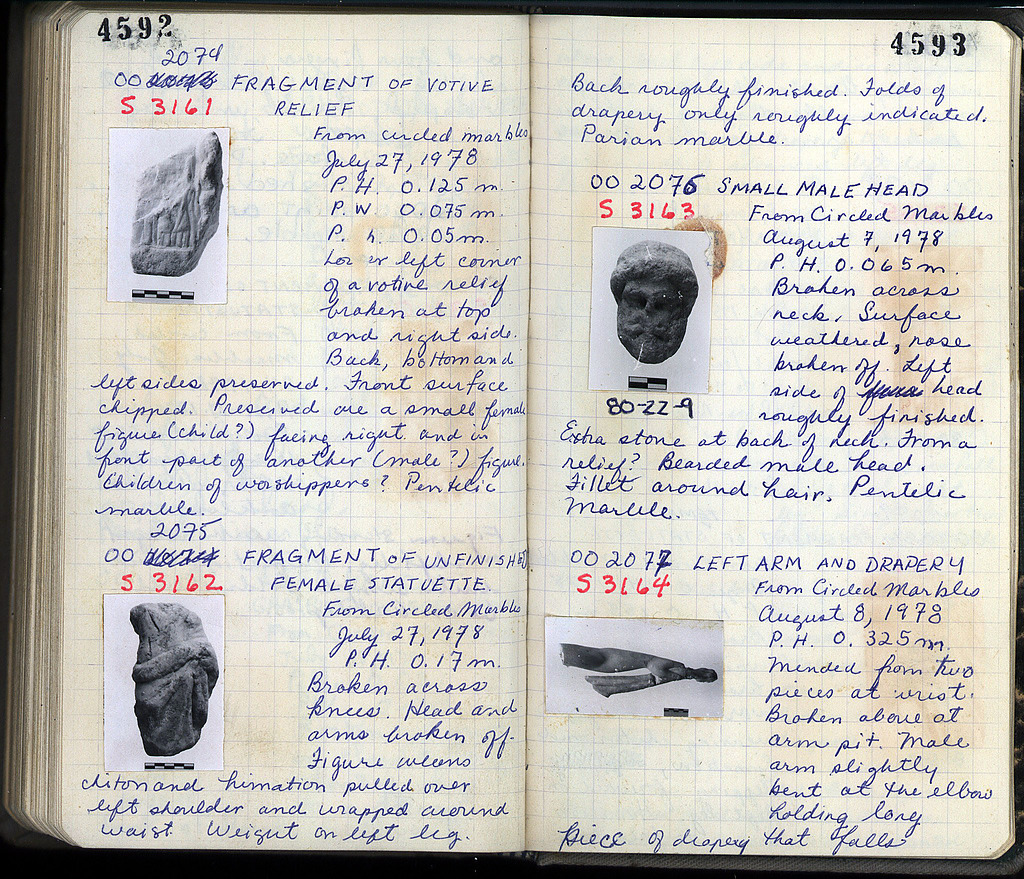 4592
2074
OO FRAGMENT OF VOTIVE
S 3161 RELIEF
From circled marbles
July 27, 1978
P. H. 0.125 m.
P. W. 0.075 m.
P. h. 0.05 m.
Lower left corner
of a votive relief
broken at top
and right side.
Back, bottom and
left sides preserved. Front surface
chipped. Preserved are a small female
figure (child?) facing right and in
front part of another (male?) figure.
Children of worshippers? Pentelic
marble.
2075
OO FRAGMENT OF UNFINISHED
S 3162 FEMALE STATUETTE.
From Circled Marbles
July 27, 1978
P. H. 0.17 m.
Broken across
knees. Head and
arms broken off.
Figure wears
chiton and himation pulled over
left shoulder and wrapped around
waist. Weight on left leg.
4593
Back roughly finished. Folds of
drapery only roughly indicated.
Parian marble.
OO 2076 SMALL MALE HEAD
S 3163 From Circled Marbles
August 7, 1978
P. H. 0.065 m.
Broken across
neck. Surface
weathered, nose
broken off. Left
side of head
roughly finished.
80-22-9
Extra stone at back of neck. From a
relief? Bearded male head.
Fillet around hair. Pentelic
Marble.
OO 2077 LEFT ARM AND DRAPERY
S 3164 From Circled Marbles
August 8, 1978
P. H. 0.325 m.
Mended from two
pieces at wrist.
Broken above at
arm pit. Male
arm slightly
bent at the elbow
holding long
piece of drapery that falls